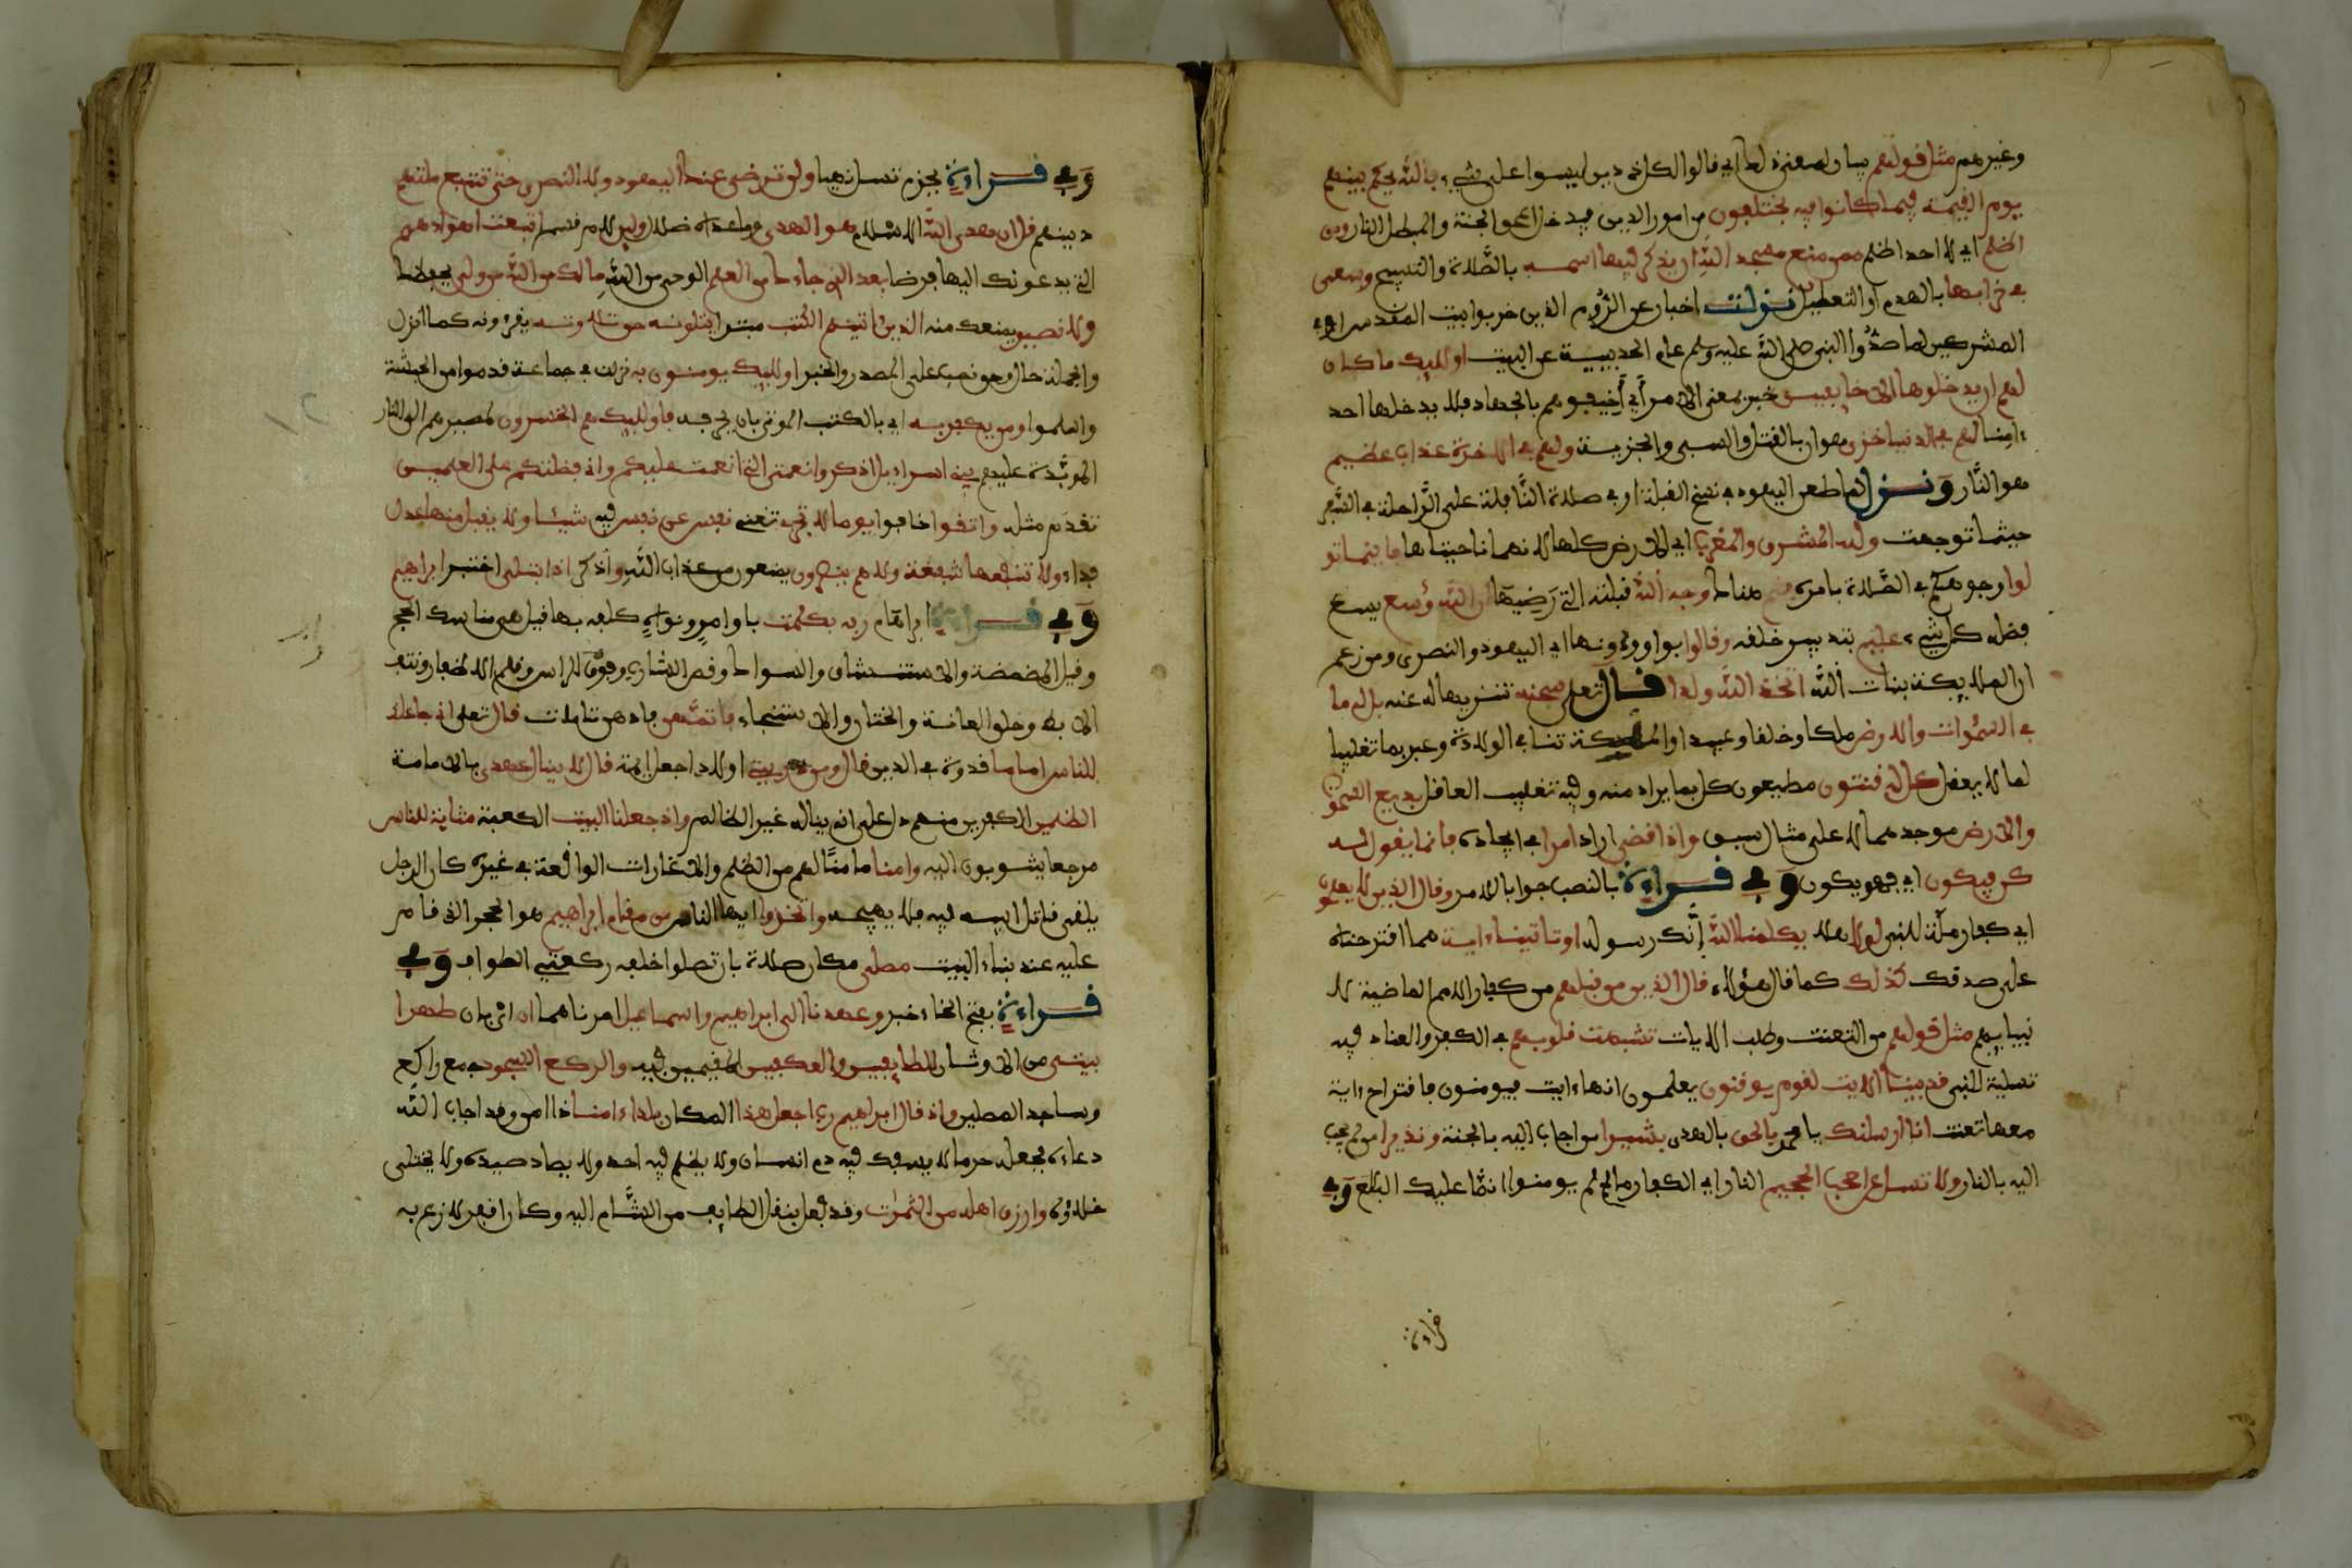 وغيرهم مثل قولهم بيان لمعنى ذلك اي قالوا لكل ذي دين ليسوا على شيء فالله يحكم بينهم
يوم القيمة فيما كانوا فيه يختلفون من امور الدين فيدخل المحق الجنة والمبطل النار ومن
اظلم اي لا احد اظلم ممن منع مسجد الله ان يذكر فيها اسمه بالصلاة والتسبيح وسعى
في خرابها بالهدم او التعطيل نزلت اخبارا عن الروم الذين خربوا بيت المقدس او في
المشركين لما صدوا النبي صلى الله عليه وسلم عام الحديبية عن البيت اوليك ما كان
لهم ان يدخلوها الا خايفين خبر بمعنى الامر اي اخيفوهم بالجهاد فلا يدخلها احد
ءامنا لهم في الدنيا خزي هوان بالقتل والسبي والجزية ولهم في الاخرة عذاب عظيم
هو النار ونزل لما طعن اليهود في نسخ القبلة او في صلاة النافلة على الراحلة في السفر
حيثما توجهت ولله المشرق والمغرب اي الارض كلها لانهما ناحيتاها فاينما تو
لوا وجوهكم في الصلاة بامره فثم هناك وجه الله قبلته التي رضيها ان الله وسع يسع
فضله كل شيء عليم بتدبير خلقه وقالوا بواو ودونها اي اليهود والنصرى ومن زعم
ان الملايكة بنات الله اتخذ الله ولدا قال تعلى سبحنه تنزيها له عنه بل له ما
في السموات والارض ملكا وخلقا وعبيدا والملكية تنافي الولادة وعبر بما تغليبا
لما لا يعقل كل له قنتون مطيعون كل بما يراد منه وفيه تغليب العاقل بديع السموت
والارض موجدهما لا على مثال سبق واذا قضى اراد امرا اي ايجاده فانما يقول له
كن فيكون اي فهو يكون وفي قراءة بالنصب جوابا للامر وقال الذين لا يعلمون
اي كفار مكة للنبي لولا هلا يكلمنا الله انك رسوله او تاتينا ءاية مما اقترحناه
على صدقك كذلك كما قال هؤلاء قال الذين من قبلهم من كفار الامم الماضية لا
نبيايهم مثل قولهم من التعنت وطلب الايات تشبهت قلوبهم في الكفر والعناد فيه
تسلية للنبي قد بينا الايت لقوم يوقنون يعلمون انها ءايت فيومنون فاقتراح ءاية
معها تعنت انا ارسلنك يا محمد بالحق بالهدى بشيرا من اجاب اليه بالجنة ونذيرا من لم يجب
اليه بالنار ولا تسل عن اصحب الجحيم النار اي الكفار ما لهم لم يومنوا انما عليك البلغ وفي
قراءة
وفي قراءة بجزم تسل نهيا ولن ترضى عنك اليهود ولا النصرى حتى تتبع ملتهم
دينهم قل ان هدى الله الاسلام هو الهدى وما عداه ضلال ولين لام قسم اتبعت اهواءهم
التي يدعونك اليها فرضا بعد الذي جاءك من العلم الوحي من الله ما لك من الله من ولي يحفظك
ولا نصير يمنعك منه الذين ءاتينهم الكتب مبتدا يتلونه حق تلاوته يقرءونه كما انزل
والجملة حال وحق نصب على المصدر والخبر اوليك يومنون به نزلت في جماعة قدموا من الحبشة
واسلموا ومن يكفر به اي بالكتب الموتى بان يحرفه فاوليك هم الخسرون لمصيرهم الى النار
الموبدة عليهم يبني اسراءيل اذكروا نعمتي التي انعمت عليكم واني فضلتكم على العلمين
تقدم مثله واتقوا خافوا يوما لا تجزي تغني نفس عن نفس فيه شيئا ولا يقبل منها عدل
فداء ولا تنفعها شفعة ولا هم ينصرون يمنعون من عذاب الله واذكر اذ ابتلى اختبر ابراهيم
وفي قراءة ابراهام ربه بكلمت باوامر ونواه كلفه بها قيل هي مناسك الحج
وقيل المضمضة والاستنشاق والسواك وقص الشارب وفرق الراس وقلم الاظفار ونتف
الابط وحلق العانة والختان والاستنجاء فاتمهن اداهن تامات قال تعلى اني جاعلك
للناس اماما قدوة في الدين قال ومن ذريتي اولادي اجعل ايمة قال لا ينال عهدي بالامامة
الظلمين الكفرين منهم دل على انه ينال غير الظالم واذ جعلنا البيت الكعبة مثابة للناس
مرجعا يثوبون اليه وامنا مامنا لهم من الظلم والاغارات الواقعة في غيره كان الرجل
يلقى قاتل ابيه فيه فلا يهيجه واتخذوا ايها الناس من مقام ابراهيم هو الحجر الذي قام
عليه عند بناء البيت مصلى مكان صلاة بان تصلوا خلفه ركعتي الطواف وفي
قراءة بفتح الخاء خبر وعهدنا الى ابراهيم واسماعيل امرناهما ان اي بان طهرا
بيتي من الاوثان للطايفين والعكفين المقيمين فيه والركع السجود جمع راكع
وساجد المصلين واذ قال ابراهيم رب اجعل هذا المكان بلدا ءامنا ذا امن وقد اجاب الله
دعاءه فجعله حرما لا يسفك فيه دم انسان ولا يظلم فيه احد ولا يصاد صيده ولا يختلى
خلاؤه وارزق اهله من الثمرت وقد فعل بنقل الطايف من الشام اليه وكان اقفر لا زرع به